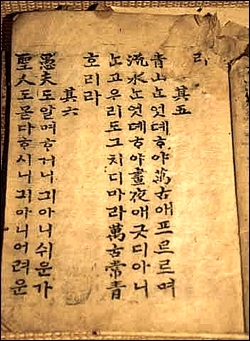 리
其五
青山ᄂᆞᆫ엇뎨ᄒᆞ야萬古애프르르며
流水ᄂᆞᆫ엇뎨ᄒᆞ야晝夜애긋디아니
ᄂᆞᆫ고우리도그치디마라萬古常青
호리라
其六
愚夫도알며ᄒᆞ거니긔아니쉬운가
聖人도몯다ᄒᆞ시니긔아니어려운